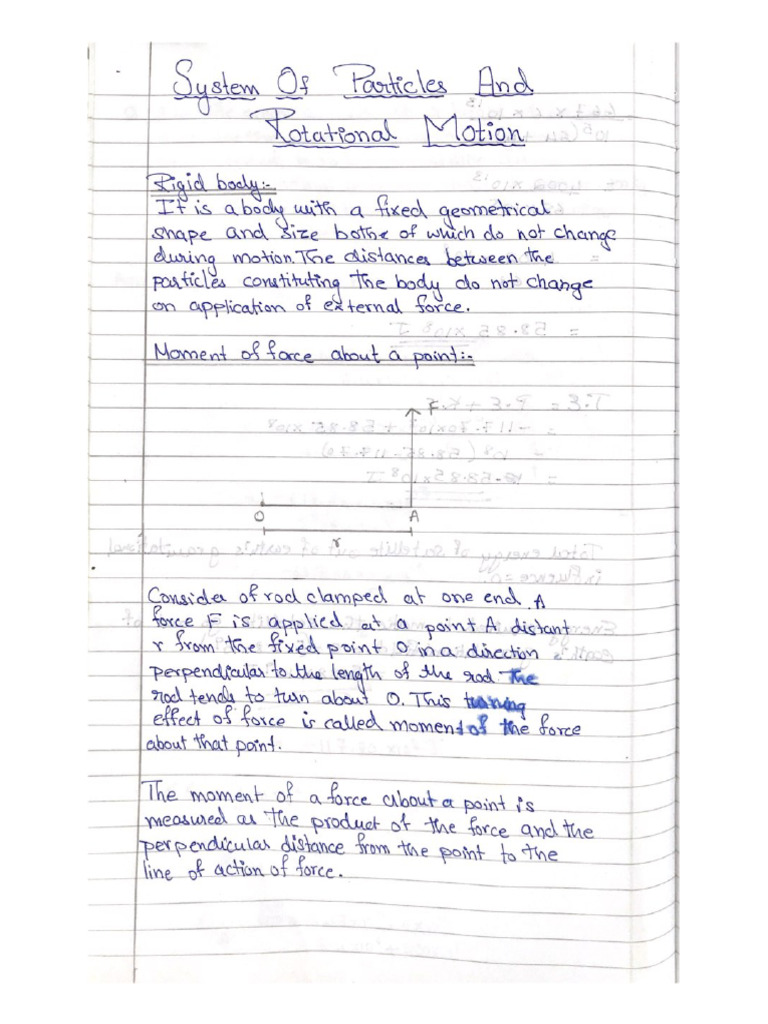 System Of Particles And
Rotational Motion
Rigid body:-
It is a body with a fixed geometrical
shape and size bothe of which do not change
during motion. The distances between the
particles constituting the body do not change
on application of external force.
Moment of force about a point:-
F
O A
r
Consider of rod clamped at one end. A
force F is applied at a point A distant
r from the fixed point O in a direction
perpendicular to the length of the rod The
rod tends to turn about O. This turning
effect of force is called moment of the force
about that point.
The moment of a force about a point is
measured as the product of the force and the
perpendicular distance from the point to the
line of action of force.